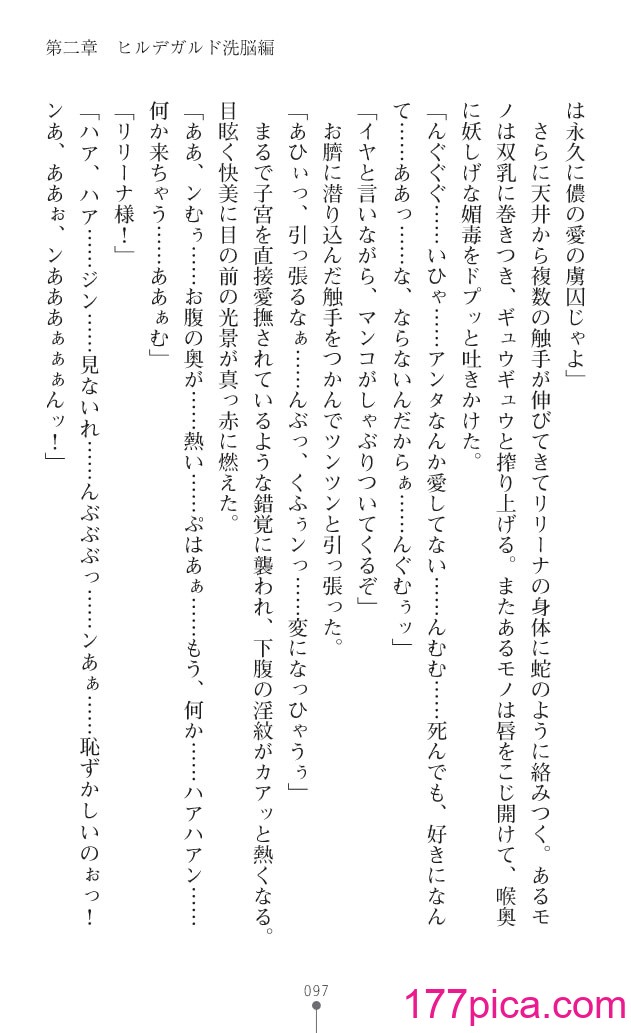 第二章　ヒルデガルド洗脳編
は永久に儂の愛の虜囚じゃよ」
さらに天井から複数の触手が伸びてきてリリーナの身体に蛇のように絡みつく。あるモ
ノは双乳に巻きつき、ギュウギュウと搾り上げる。またあるモノは唇をこじ開けて、喉奥
に妖しげな媚毒をドプッと吐きかけた。
「んぐぐぐ……いひゃ……アンタなんか愛してない……んむむ……死んでも、好きになん
て……ああっ……な、ならないんだからぁ……んぐむぅッ」
「イヤと言いながら、マンコがしゃぶりついてくるぞ」
お臍に潜り込んだ触手をつかんでツンツンと引っ張った。
「あひぃっ、引っ張るなぁ……んぶっ、くふぅンっ……変になっひゃうぅ」
まるで子宮を直接愛撫されているような錯覚に襲われ、下腹の淫紋がカアッと熱くなる。
目眩く快美に目の前の光景が真っ赤に燃えた。
「ああ、ンむぅ……お腹の奥が……熱い……ぷはあぁ……もう、何か……ハアハアン……
何か来ちゃう……ああぁむ」
「リリーナ様！」
「ハア、ハア……ジン……見ないれ……んぶぶぶっ……ンあぁ……恥ずかしいのぉっ！
ンあ、ああぉ、ンあああぁぁぁんッ！」
097
177pica.com